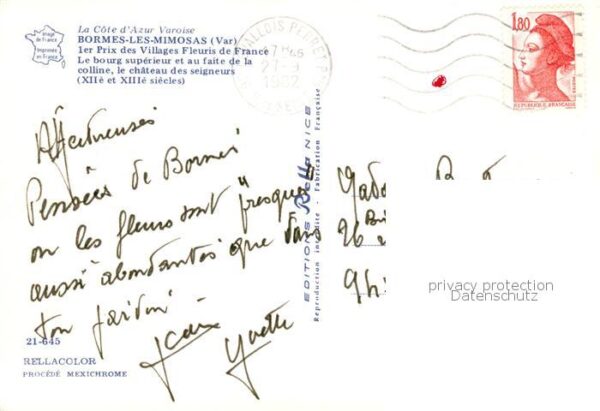 La Côte d'Azur Varoise
BORMES-LES-MIMOSAS (Var)
1er Prix des Villages Fleuris de France
Le bourg supérieur et au faite de la
colline, le château des seigneurs
(XIIè et XIIIè siècles)
Image
de France
Imprimée
en France
1,80
REPUBLIQUE FRANÇAISE
Affectueuses
Pensées de Bormes
ou les fleurs sont "presque"
aussi abondantes que dans
ton jardin
Yvette
21-645
RELLACOLOR
PROCÉDÉ MEXICHROME
EDITIONS Rella NICE
Reproduction interdite - Fabrication Française
26
privacy protection
Datenschutz